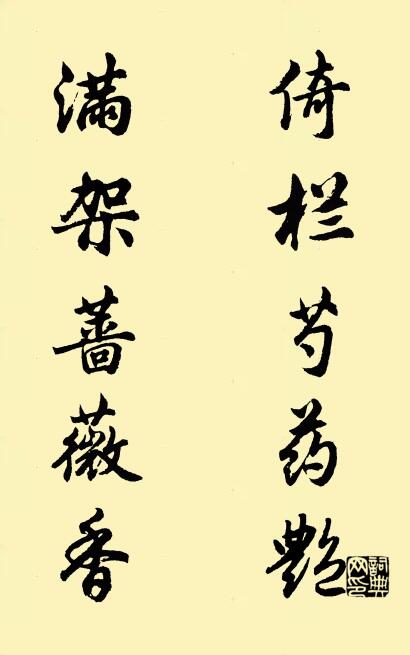 倚栏芍药艷
满架蔷薇香
詞典网印